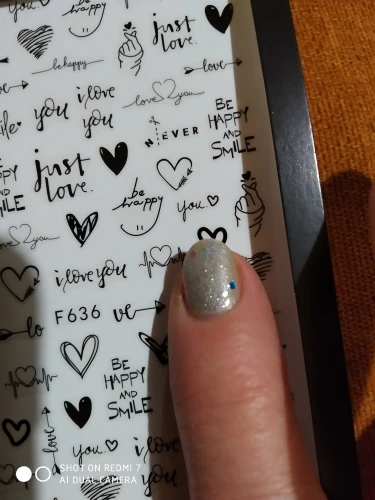 you
be
happy
just
love.
be happy
love
i love
you
you
love you
BE
HAPPY
AND
SMiLE
NEVER
just
love.
be
happy
you
love you
i love you
F636
BE
HAPPY
AND
SMiLE
love
you
i love
you
SHOT ON REDMI 7
AI DUAL CAMERA